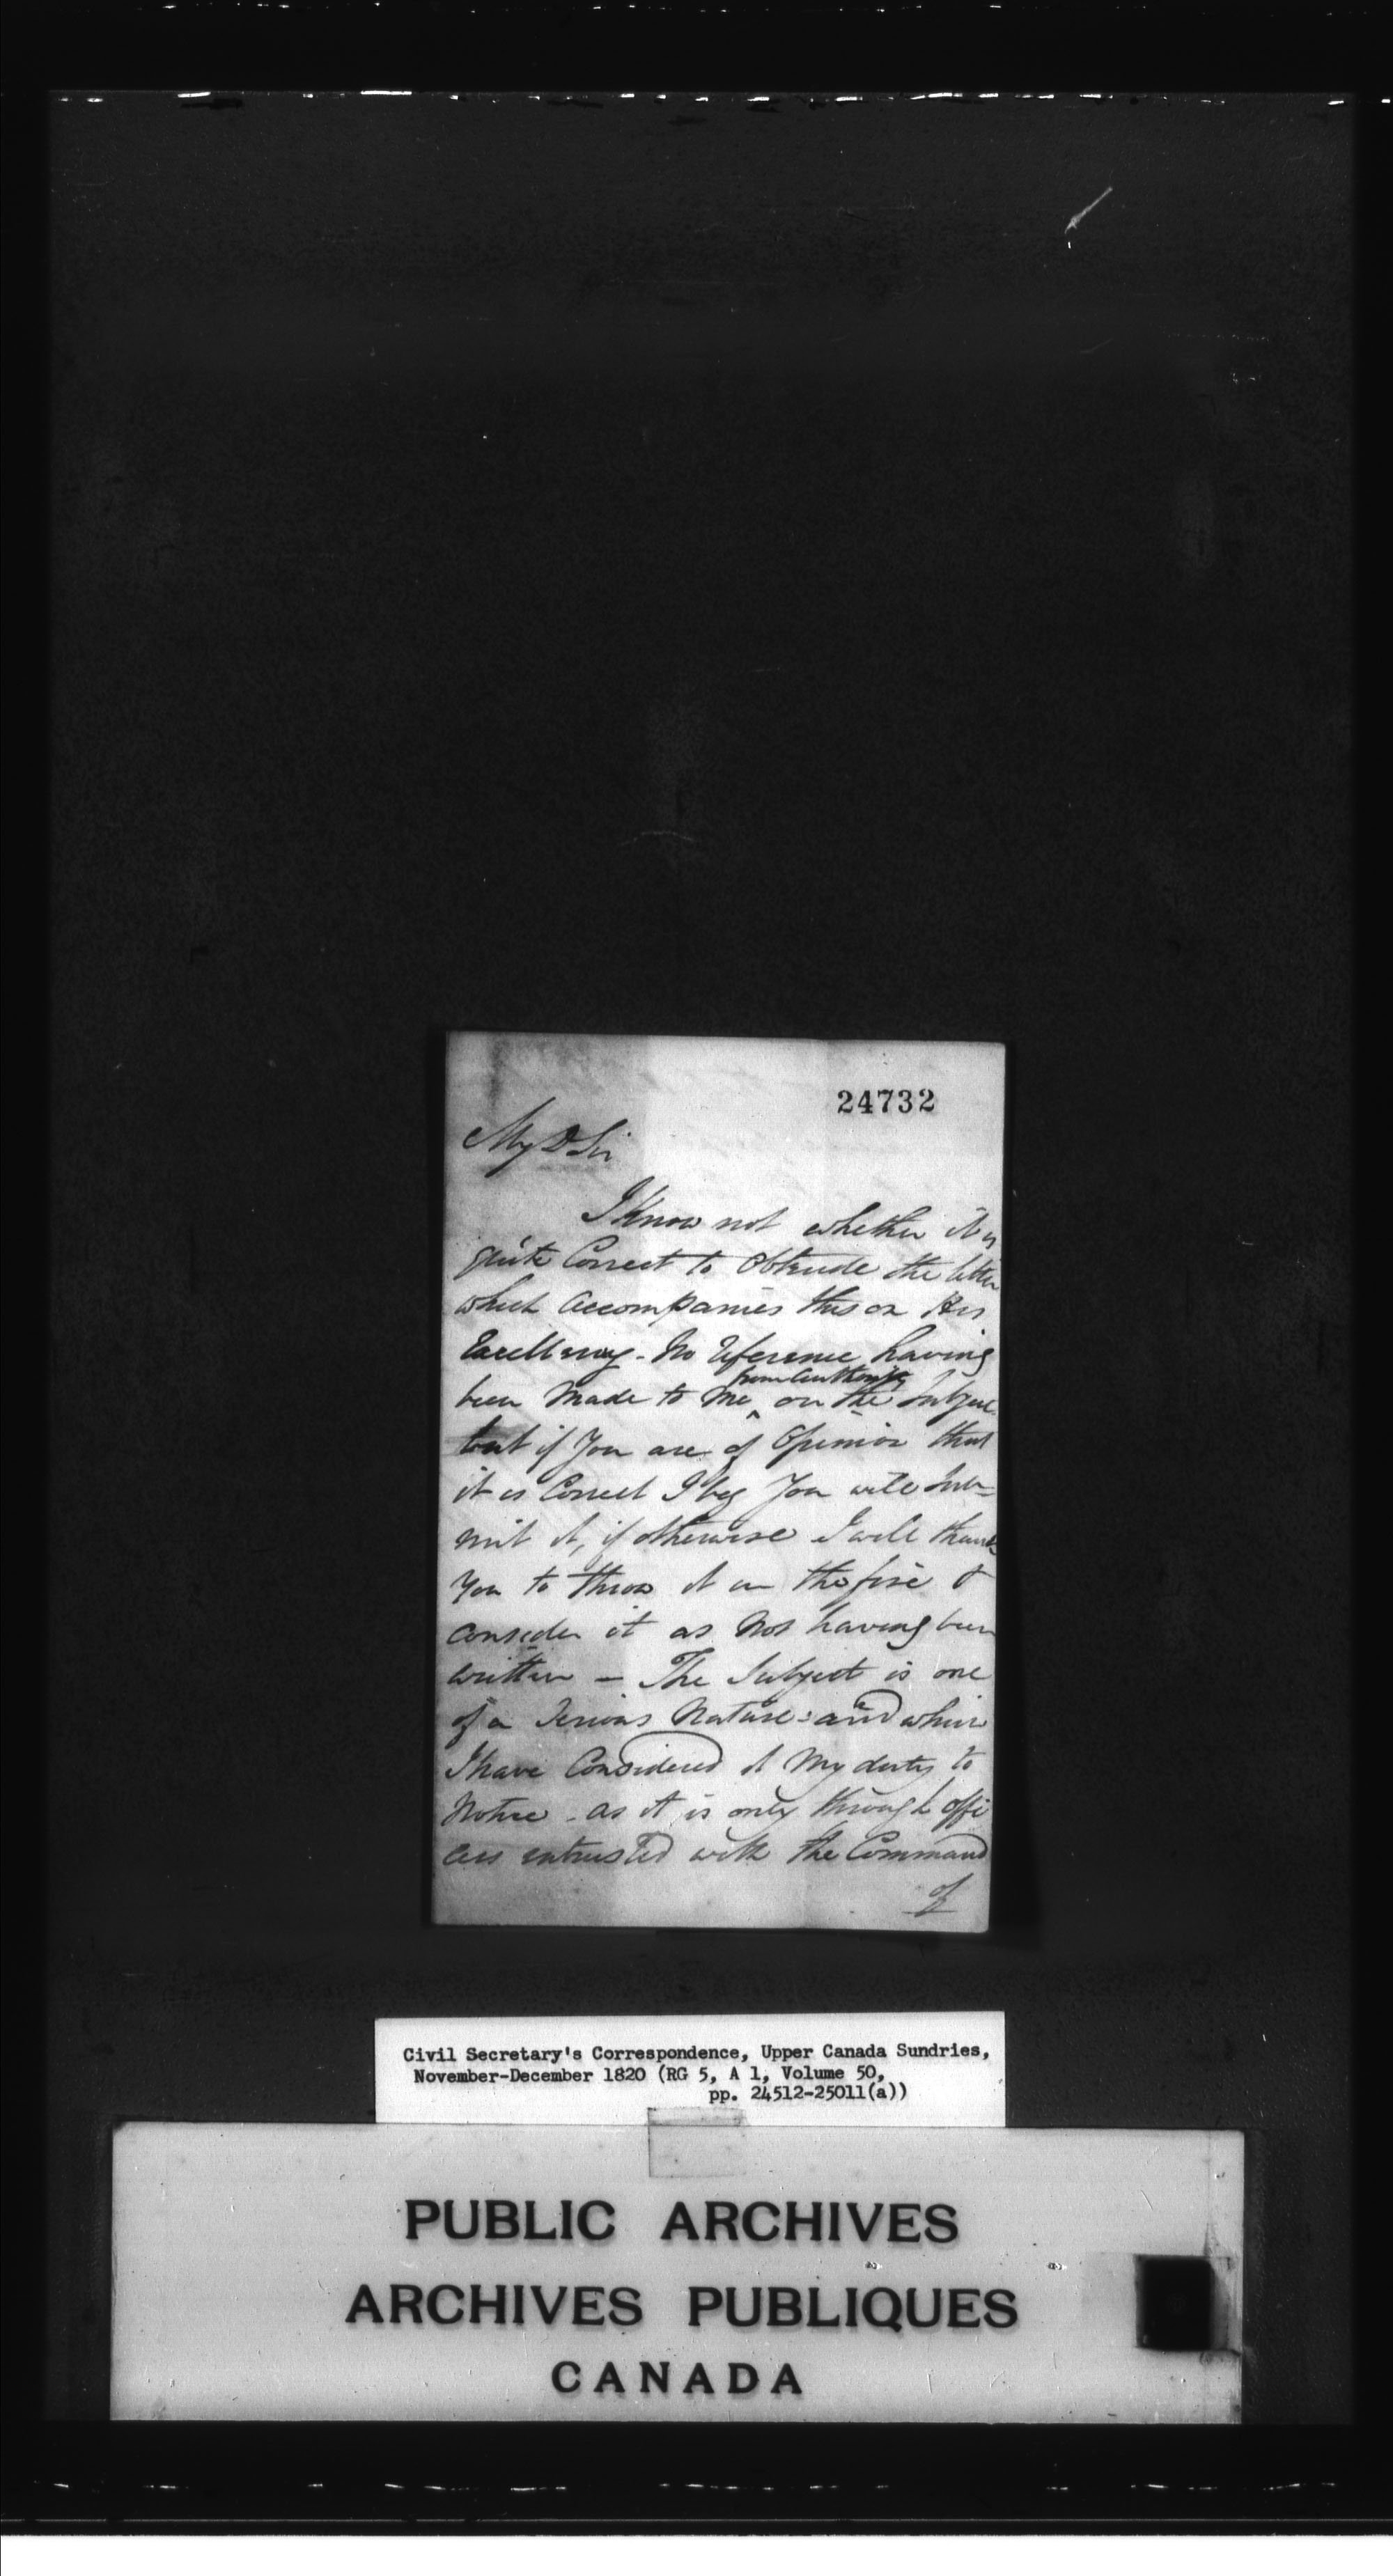 24732
My D Sir
I Know not whether it is
quite Correct to Obtrude the letter
which accompanies this on His
Excellency - No reference having
been Made to Me ‸ from Authority on the Subject
but if You are of Opinion that
it is Correct I beg You will sub=
mit it, if otherwise I will thank
You to throw it in the fire &
consider it as Not having been
written - The Subject is one
of a Serious Nature: and which
I have Considered it My duty to
Notice - as it is only through offi
cers entrusted with the Command
of
Civil Secretary's Correspondence, Upper Canada Sundries,
November-December 1820 (RG 5, A 1, Volume 50,
pp. 24512-25011(a))
PUBLIC ARCHIVES
ARCHIVES PUBLIQUES
CANADA